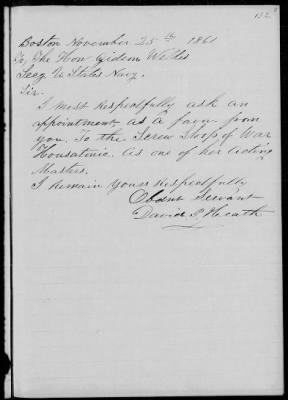 132
Boston November 25th 1861
To, The Hon Gideon Welles
Secy U States Navy.
Sir.
I most Respectfully ask an
appointment, as a favor from
you. To the Screw Sloop of War
Housatonic. As one of her Acting
Masters.
I Remain Yours Respectfully
Obdnt Servant
David P. Heath